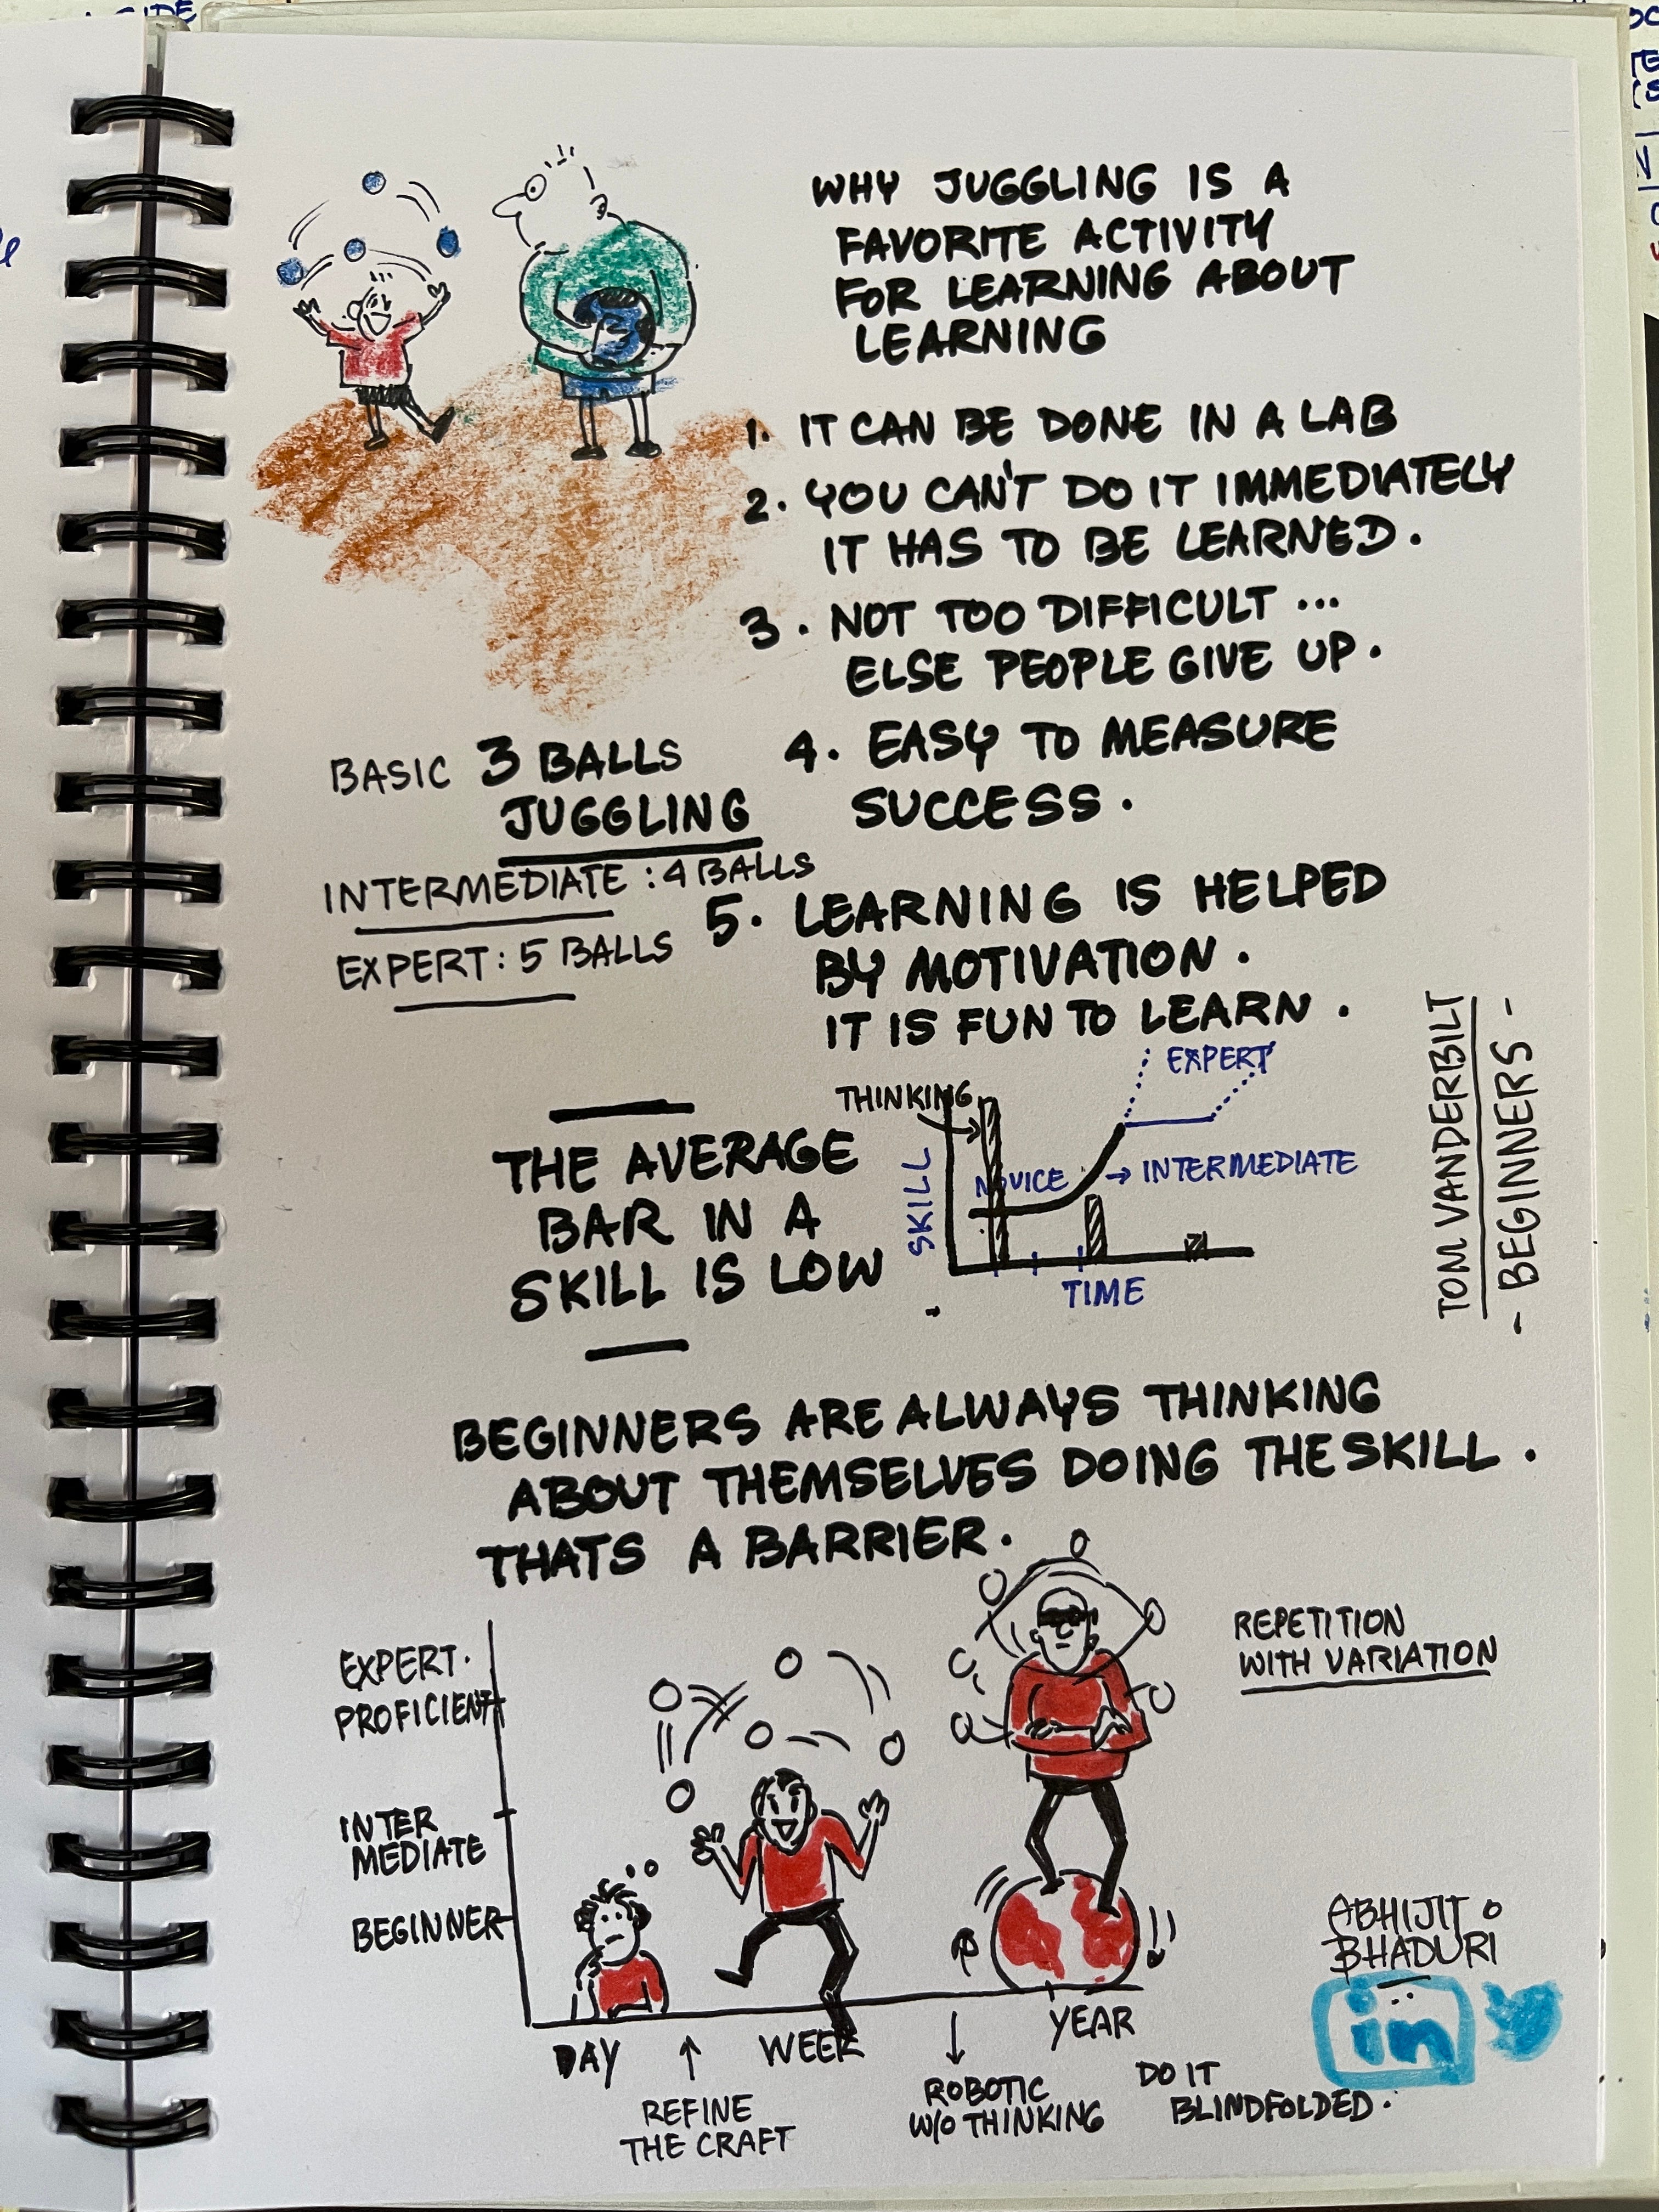 WHY JUGGLING IS A
FAVORITE ACTIVITY
FOR LEARNING ABOUT
LEARNING
1. IT CAN BE DONE IN A LAB
2. YOU CAN'T DO IT IMMEDIATELY
IT HAS TO BE LEARNED.
3. NOT TOO DIFFICULT ...
ELSE PEOPLE GIVE UP.
4. EASY TO MEASURE
SUCCESS.
BASIC 3 BALLS
JUGGLING
INTERMEDIATE : 4 BALLS
EXPERT : 5 BALLS
5. LEARNING IS HELPED
BY MOTIVATION.
IT IS FUN TO LEARN.
THE AVERAGE
BAR IN A
SKILL IS LOW.
THINKING
EXPERT
NOVICE
→ INTERMEDIATE
SKILL
TIME
TOM VANDERBILT
- BEGINNERS -
BEGINNERS ARE ALWAYS THINKING
ABOUT THEMSELVES DOING THE SKILL.
THATS A BARRIER.
REPETITION
WITH VARIATION
EXPERT.
PROFICIENT
INTER
MEDIATE
BEGINNER
DAY
WEEK
YEAR
REFINE
THE CRAFT
ROBOTIC
W/O THINKING
DO IT
BLINDFOLDED.
ABHIJIT
BHADURI
in